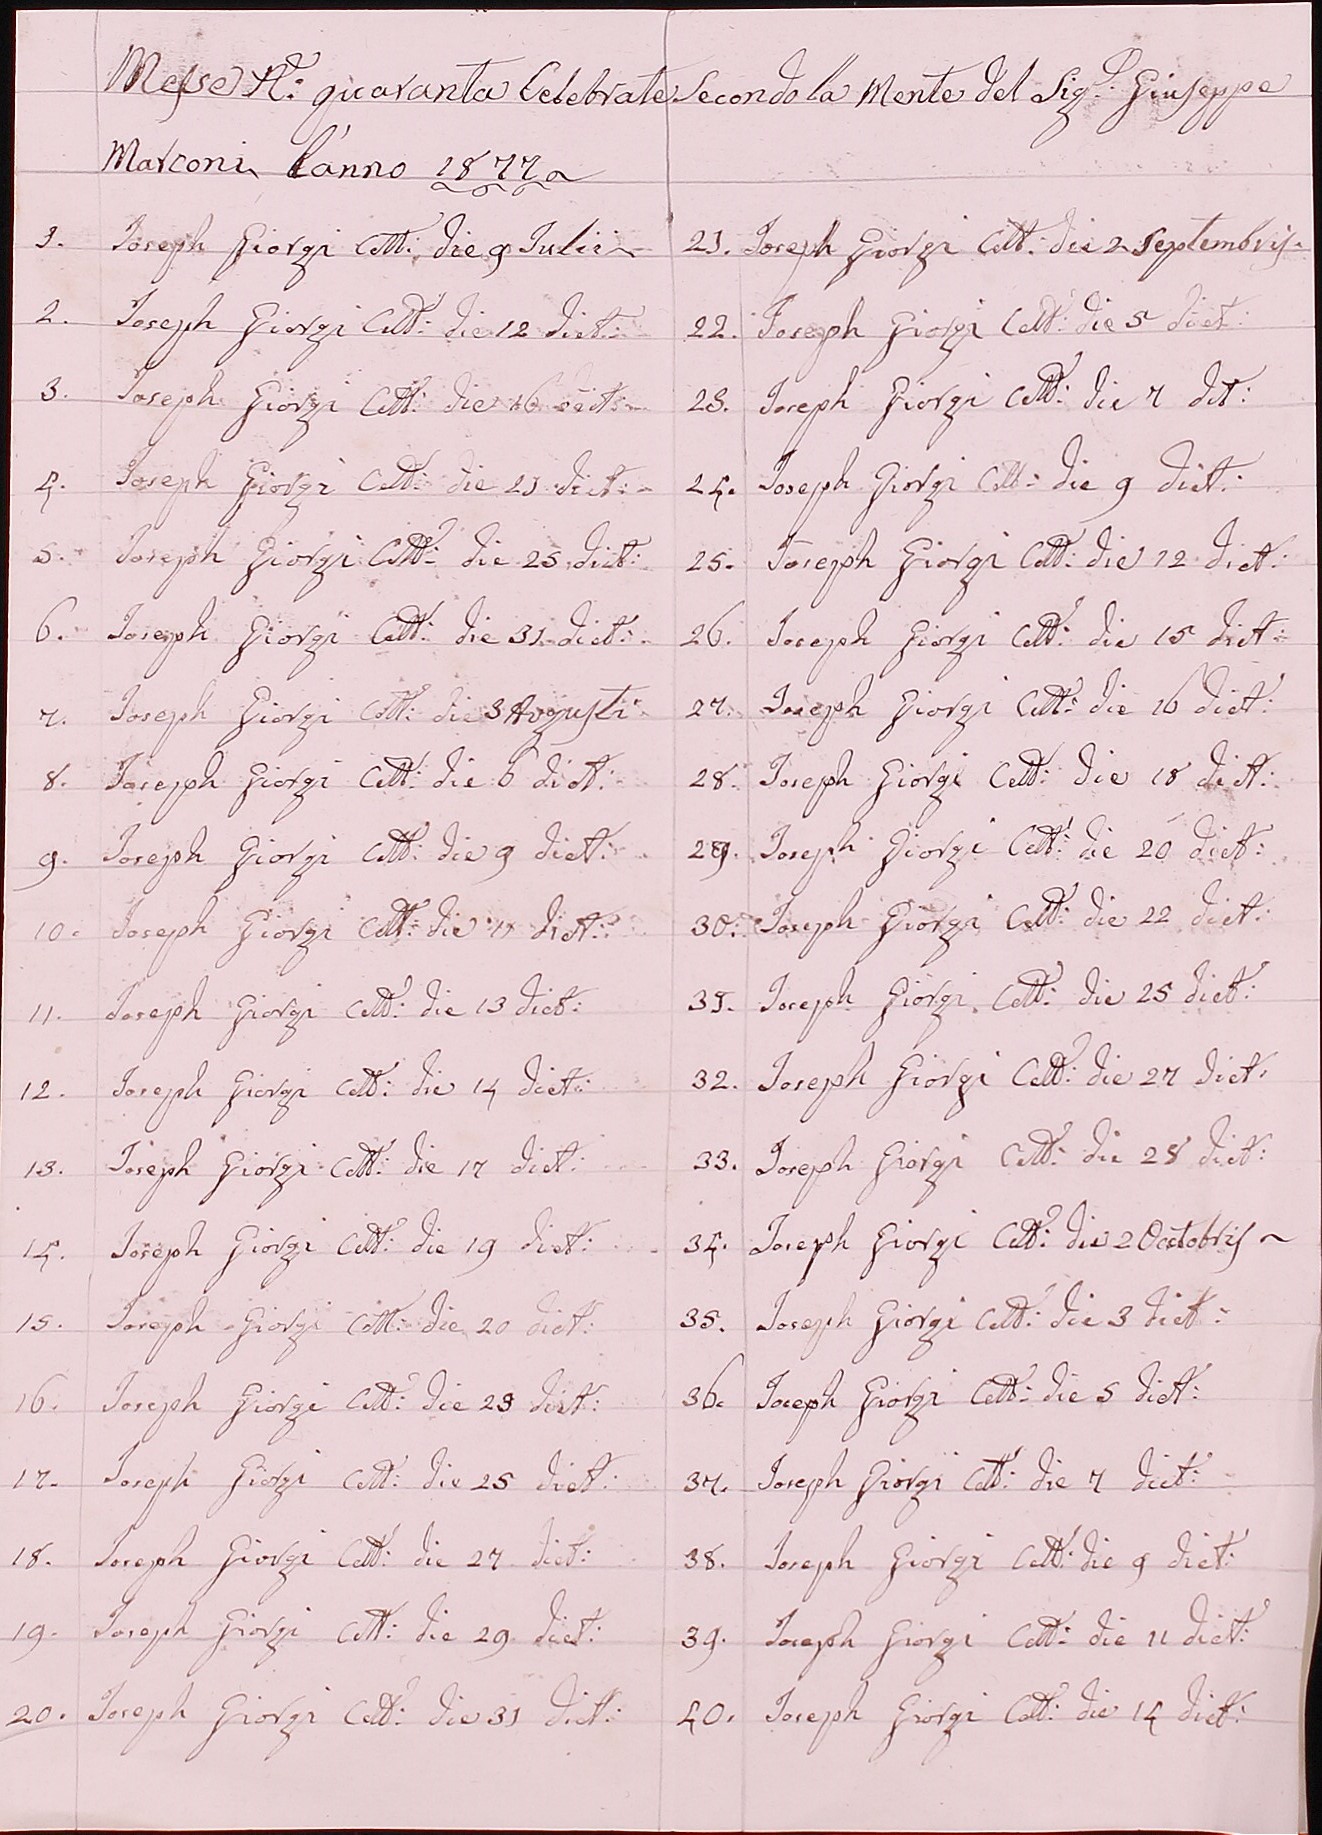 Messe N.º quaranta Celebrate Secondo la Mente del Sig.r Giuseppe
Marconi l'anno 1877
1. Joseph Giorgi Cett: die 9 Julii
2. Joseph Giorgi Cett: die 12 dict:
3. Joseph Giorgi Cett: die 16 dict:
4. Joseph Giorgi Cett: die 21 dict:
5. Joseph Giorgi Cett: die 25 dict:
6. Joseph Giorgi Cett: die 31 dict:
7. Joseph Giorgi Cett: die 3 Augusti
8. Joseph Giorgi Cett: die 6 dict:
9. Joseph Giorgi Cett: die 9 dict:
10. Joseph Giorgi Cett: die 11 dict:
11. Joseph Giorgi Cett: die 13 dict:
12. Joseph Giorgi Cett: die 14 dict:
13. Joseph Giorgi Cett: die 17 dict:
14. Joseph Giorgi Cett: die 19 dict:
15. Joseph Giorgi Cett: die 20 dict:
16. Joseph Giorgi Cett: die 23 dict:
17. Joseph Giorgi Cett: die 25 dict:
18. Joseph Giorgi Cett: die 27 dict:
19. Joseph Giorgi Cett: die 29 dict:
20. Joseph Giorgi Cett: die 31 dict:
21. Joseph Giorgi Cett: die 2 Septembris
22. Joseph Giorgi Cett: die 5 dict:
23. Joseph Giorgi Cett: die 7 dit:
24. Joseph Giorgi Cett: die 9 dict:
25. Joseph Giorgi Cett: die 12 dict:
26. Joseph Giorgi Cett: die 15 dict:
27. Joseph Giorgi Cett: die 16 dict:
28. Joseph Giorgi Cett: die 18 dict:
29. Joseph Giorgi Cett: die 20 dict:
30. Joseph Giorgi Cett: die 22 dict:
31. Joseph Giorgi Cett: die 25 dict:
32. Joseph Giorgi Cett: die 27 dict:
33. Joseph Giorgi Cett: die 28 dict:
34. Joseph Giorgi Cett: die 2 Octobris
35. Joseph Giorgi Cett: die 3 dict:
36. Joseph Giorgi Cett: die 5 dict:
37. Joseph Giorgi Cett: die 7 dict:
38. Joseph Giorgi Cett: die 9 dict:
39. Joseph Giorgi Cett: die 11 dict:
40. Joseph Giorgi Cett: die 14 dict: